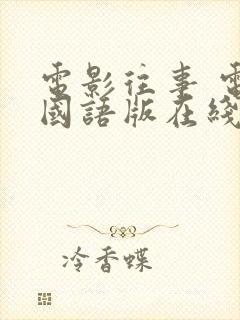 電影往事 電
國語版在綫
冷香蝶